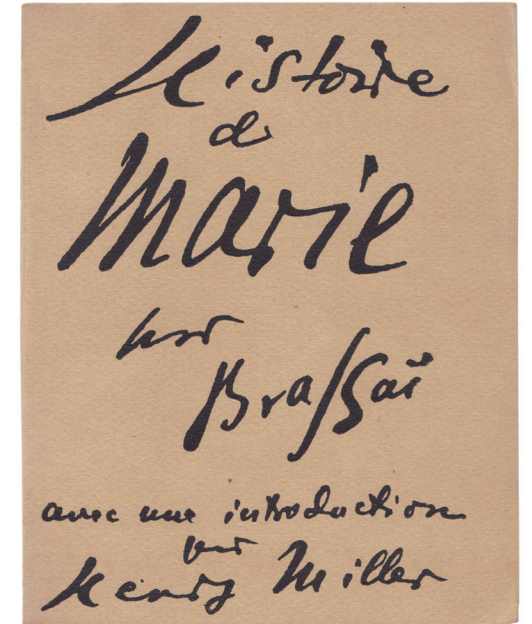 Histoire
de
Marie
par
Brassaï
avec une introduction
par
Henry Miller